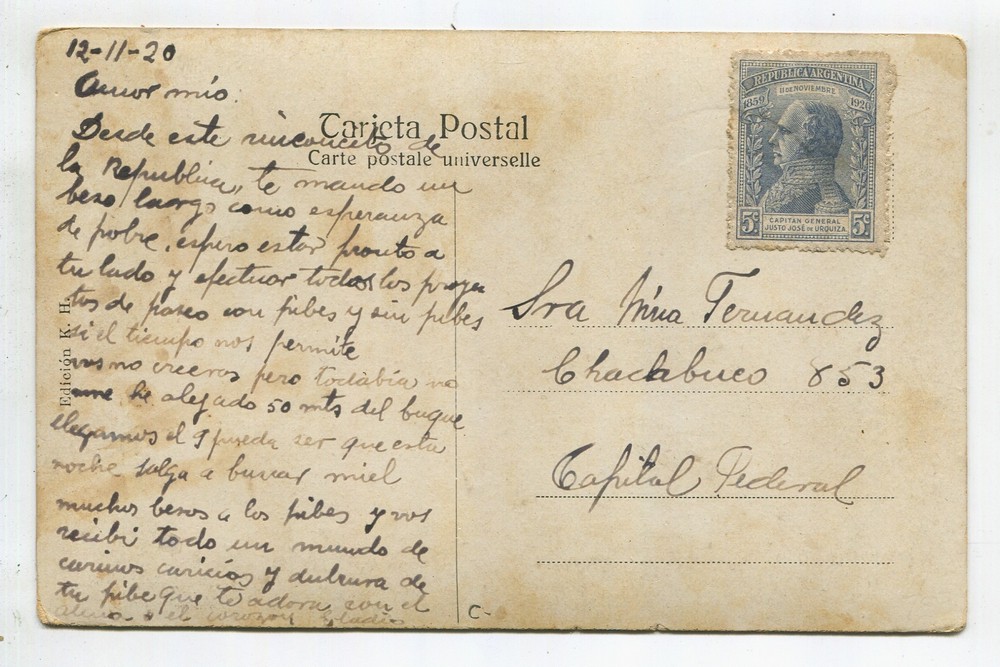 12-11-20
Amor mío.
Desde este rinconcito de
la Republica, te mando un
beso largo como esperanza
de pobre. espero estar pronto a
tu lado y efectuar todos los proyec
tos de paseo con pibes y sin pibes
si el tiempo nos permite
vos no creeras pero todabia no
me he alejado 50 mts del buque
llegamos el 9 pueda ser que esta
noche salga a buscar miel
muchos besos a los pibes y vos
recibi todo un mundo de
carinos caricias y dulzura de
tu pibe que te adora con el
alma y el corazon
Tarjeta Postal
Carte postale universelle
Edición K. H.
REPUBLICA ARGENTINA
11 DE NOVIEMBRE
1859 1920
5c 5c
CAPITAN GENERAL
JUSTO JOSÉ DE URQUIZA
Sra Nina Fernandez
Chacabuco 853
Capital Federal
C-